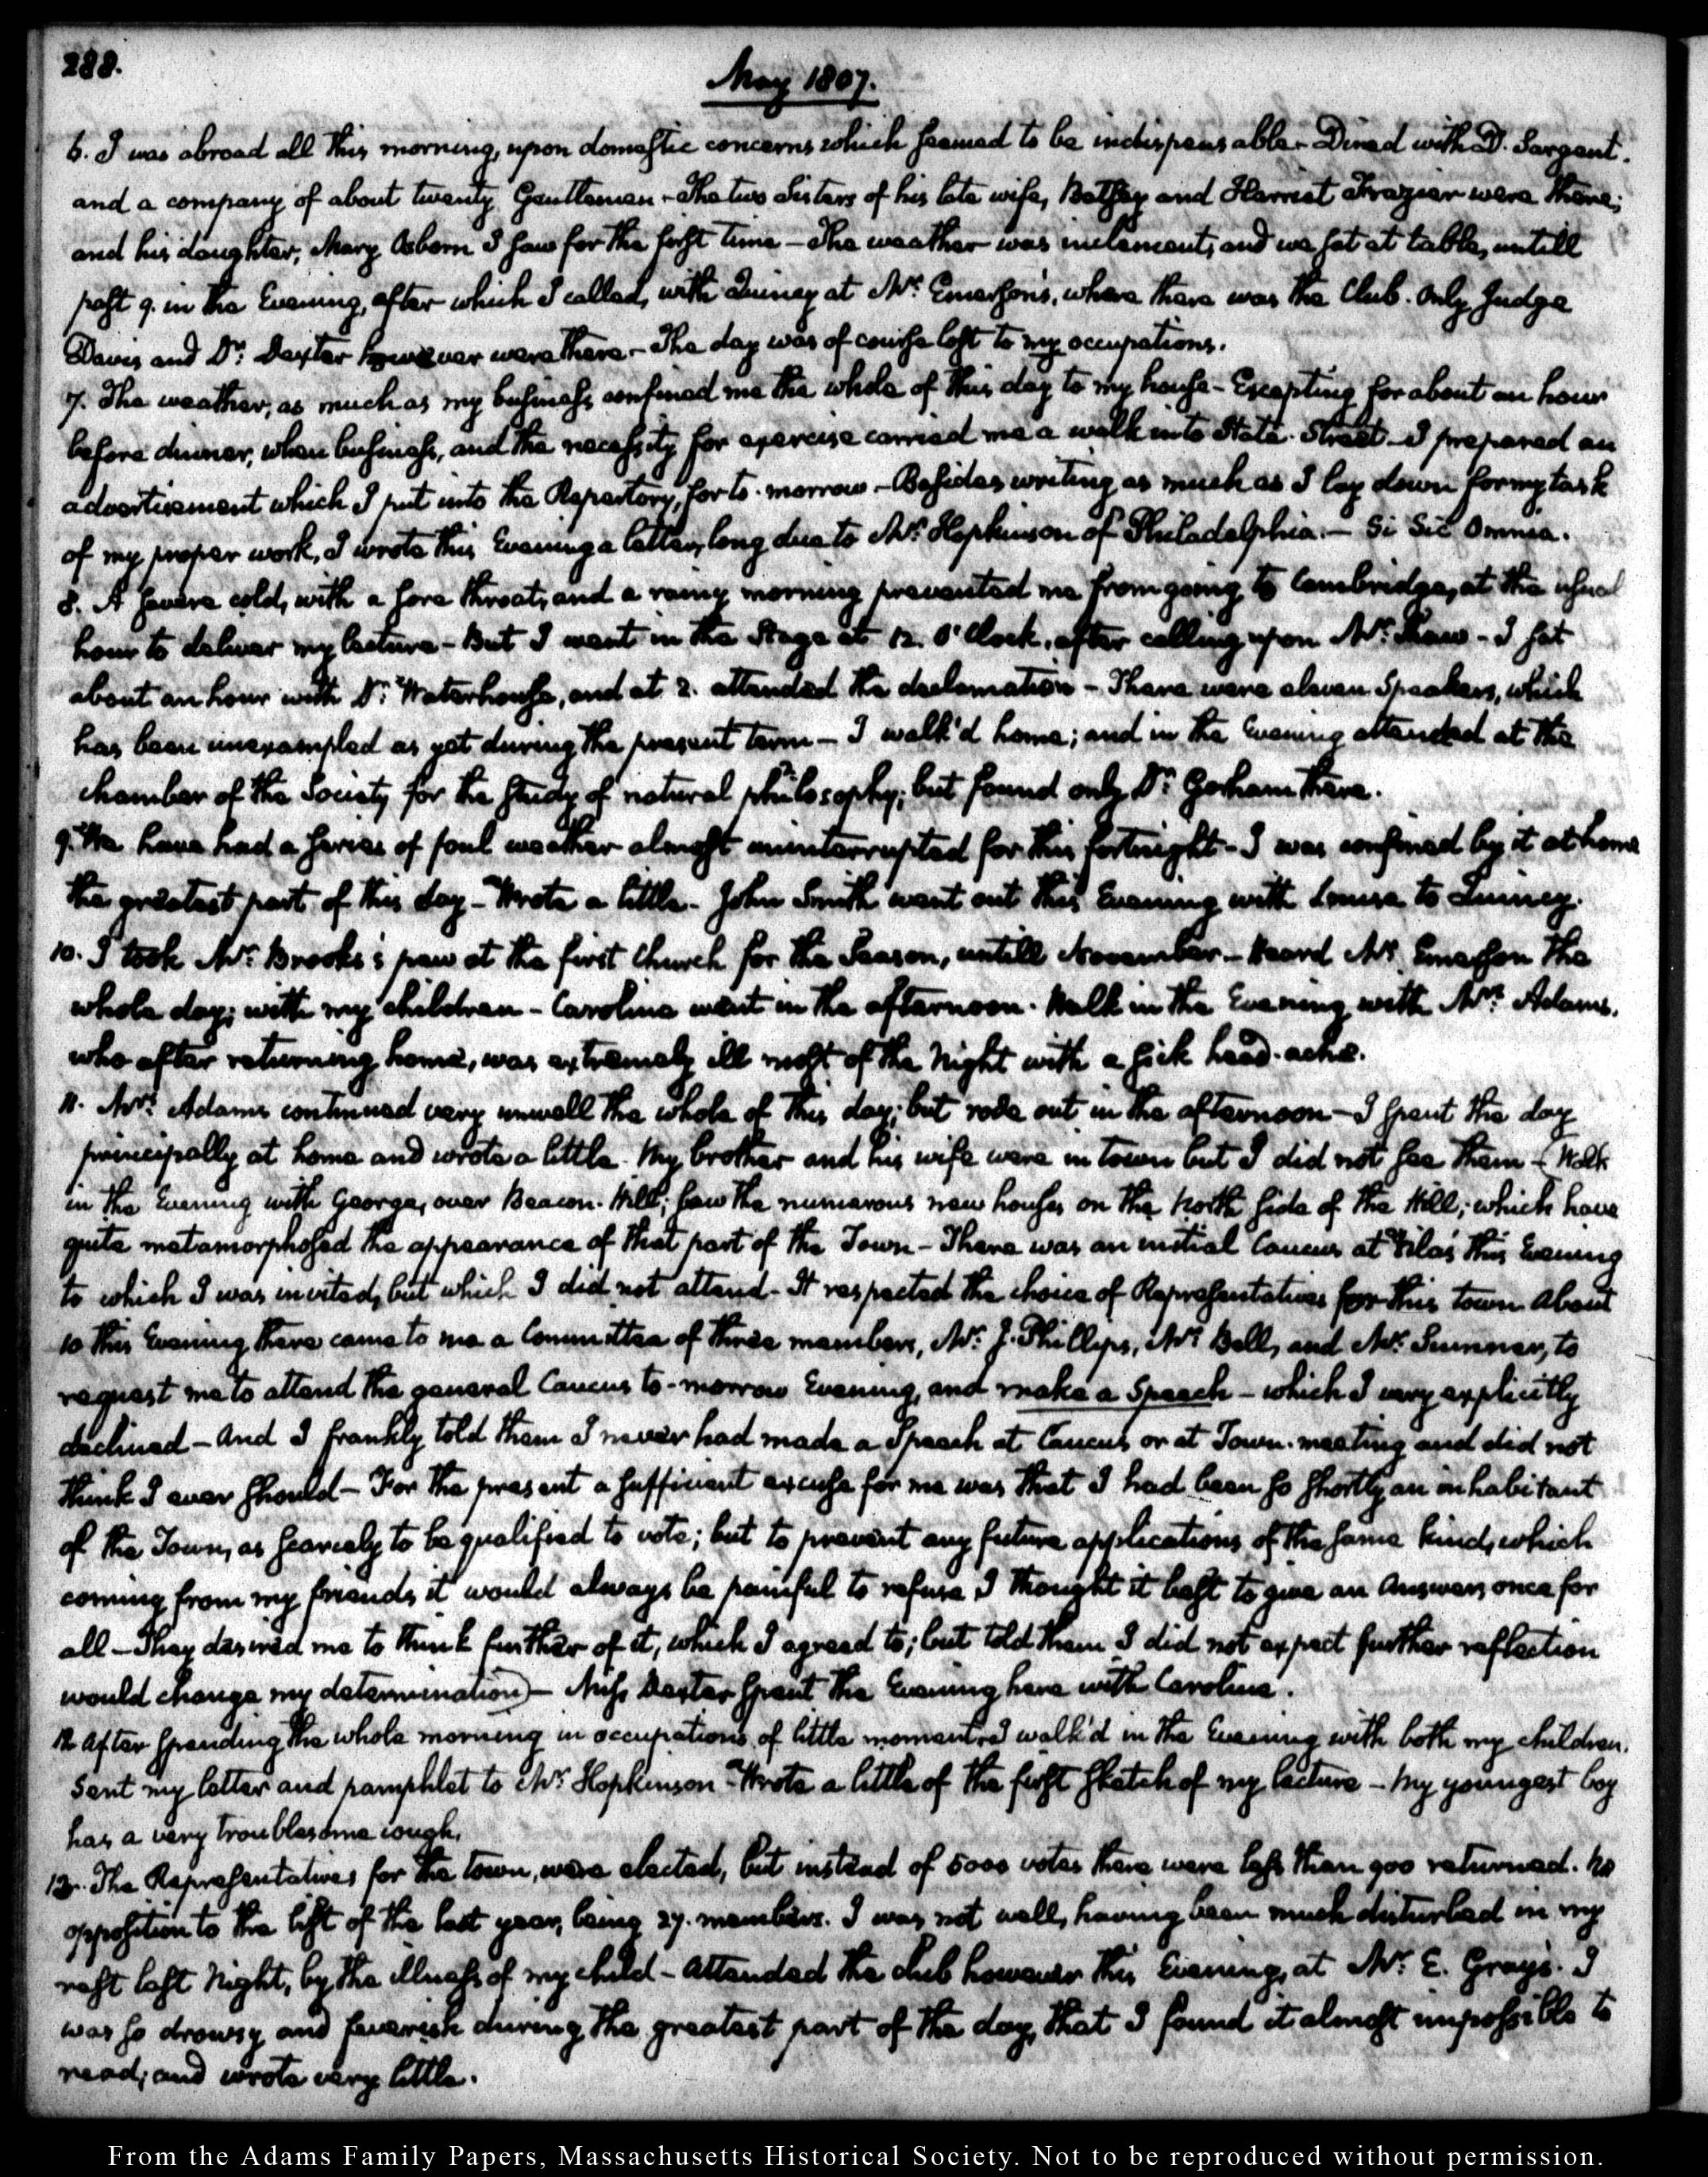 288.
May 1807.
6. I was abroad all this morning, upon domestic concerns which seemed to be indispensable - Dined with D. Sargent.
and a company of about twenty Gentlemen - The two Sisters of his late wife, Betsey and Harriet Frazier were there;
and his daughter, Mary Osborn I saw for the first time - The weather was inclement, and we sat at table, untill
past 9. in the Evening, after which I called, with Quincy at Mr. Emerson's, where there was the Club. Only Judge
Davis and Dr. Dexter however were there - The day was of course lost to my occupations.
7. The weather, as much as my business confined me the whole of this day to my house - Excepting for about an hour
before dinner, when business, and the necessity for exercise carried me a walk into State-Street - I prepared an
advertisement which I put into the Repertory, for to-morrow - Besides writing as much as I lay down for my task
of my proper work, I wrote this Evening a letter, long due to Mr. Hopkinson of Philadelphia. - Si Sic Omnia.
8. A severe cold, with a sore throat, and a rainy morning prevented me from going to Cambridge, at the usual
hour to deliver my lecture - But I went in the Stage at 12. O'Clock, after calling upon Mr. Shaw - I sat
about an hour with Dr. Waterhouse, and at 2. attended the declamation - There were eleven Speakers, which
has been unexampled as yet during the present term - I walk'd home; and in the Evening attended at the
chamber of the Society for the study of natural philosophy; but found only Dr. Gorham there.
9. We have had a series of foul weather almost uninterrupted for this fortnight - I was confined by it at home
the greatest part of this day - Wrote a little - John Smith went out this Evening with Louisa to Quincy.
10. I took Mr. Brooks's pew at the first Church for the Season, untill November - Heard Mr. Emerson the
whole day; with my children - Caroline went in the afternoon. Walk in the Evening with Mrs. Adams,
who after returning home, was extremely ill most of the Night with a sick head-ache.
11. Mrs. Adams continued very unwell the whole of this day; but rode out in the afternoon - I spent the day
principally at home and wrote a little. My brother and his wife were in town but I did not see them - Walk
in the Evening with George, over Beacon-Hill; saw the numerous new houses on the North side of the Hill; which have
quite metamorphosed the appearance of that part of the Town - There was an initial Caucus at Vila's this Evening
to which I was invited, but which I did not attend - It respected the choice of Representatives for this town. About
10 this Evening there came to me a Committee of three members, Mr. J. Phillips, Mr. Bell, and Mr. Sumner, to
request me to attend the general Caucus to-morrow Evening, and make a Speech - which I very explicitly
declined - And I frankly told them I never had made a Speech at Caucus or at Town-meeting and did not
think I ever should - For the present a sufficient excuse for me was that I had been so shortly an inhabitant
of the Town, as scarcely to be qualified to vote; but to prevent any future applications of the same kind, which
coming from my friends it would always be painful to refuse I thought it best to give an Answer, once for
all - They desired me to think further of it, which I agreed to; but told them I did not expect further reflection
would change my determination - Miss Dexter spent the Evening here with Caroline.
12. After spending the whole morning in occupations of little moment, I walk'd in the Evening with both my children.
Sent my letter and pamphlet to Mr. Hopkinson - Wrote a little of the first sketch of my lecture - My youngest boy
has a very troublesome cough.
13. The Representatives for the town, were elected, but instead of 5000 votes there were less than 900 returned. No
opposition to the list of the last year, being 27. members. I was not well, having been much disturbed in my
rest last Night, by the illness of my child - attended the club however this Evening, at Mr. E. Gray's. I
was so drowsy and feverish during the greatest part of the day, that I found it almost impossible to
read; and wrote very little.
From the Adams Family Papers, Massachusetts Historical Society. Not to be reproduced without permission.